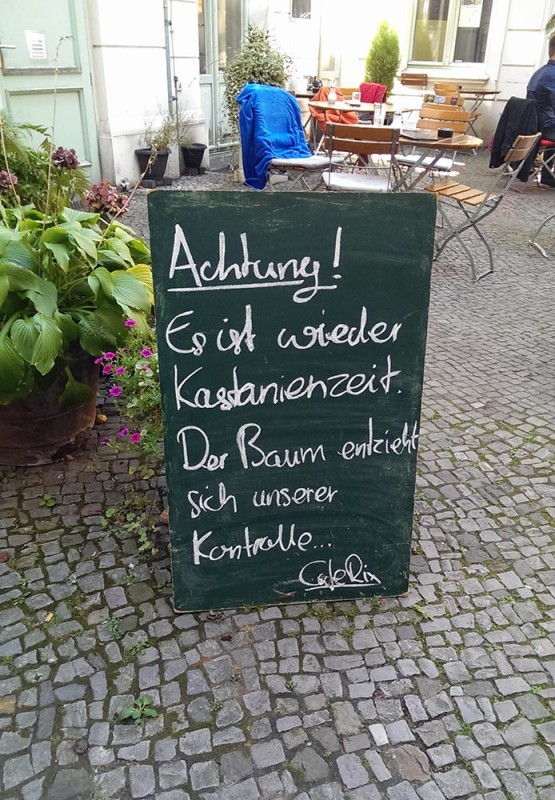 Achtung!
Es ist wieder
Kastanienzeit.
Der Baum entzieht
sich unserer
Kontrolle...
Cafe Rix